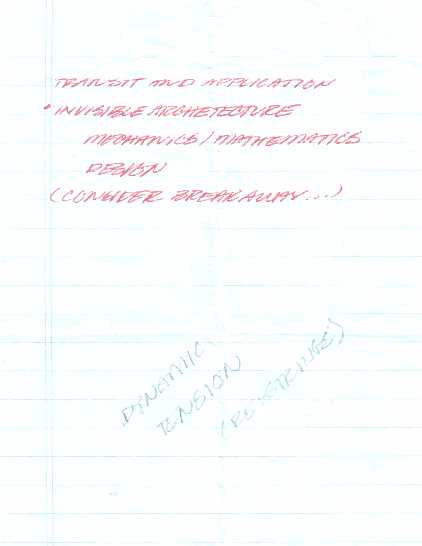 TRANSIT AND APPLICATION
• INVISIBLE ARCHETECTURE
MECHANICS / MATHEMATICS
DESIGN
(CONSIDER BREAK AWAY...)
DYNAMIC
TENSION